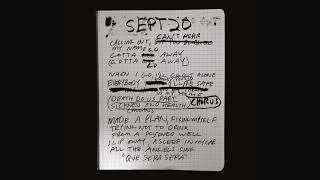 SEPT 20
CAN'T HEAR
CALLING OUT,
MY NAME
GOTTA GO AWAY
(GOTTA GO AWAY)
WHEN I GO, I'LL GO ALONE
EVERYBODY SAFE
DEATH DO US PART
SICKNESS AND HEALTH CHORUS
MADE A PLAN, FIXING MYSELF
TRYING NOT TO DRINK
FROM A POISONED WELL
SLIP AWAY, ASLEEP IN MY CAR
ALL THE ANGELS SING
"QUE SERA SERA"